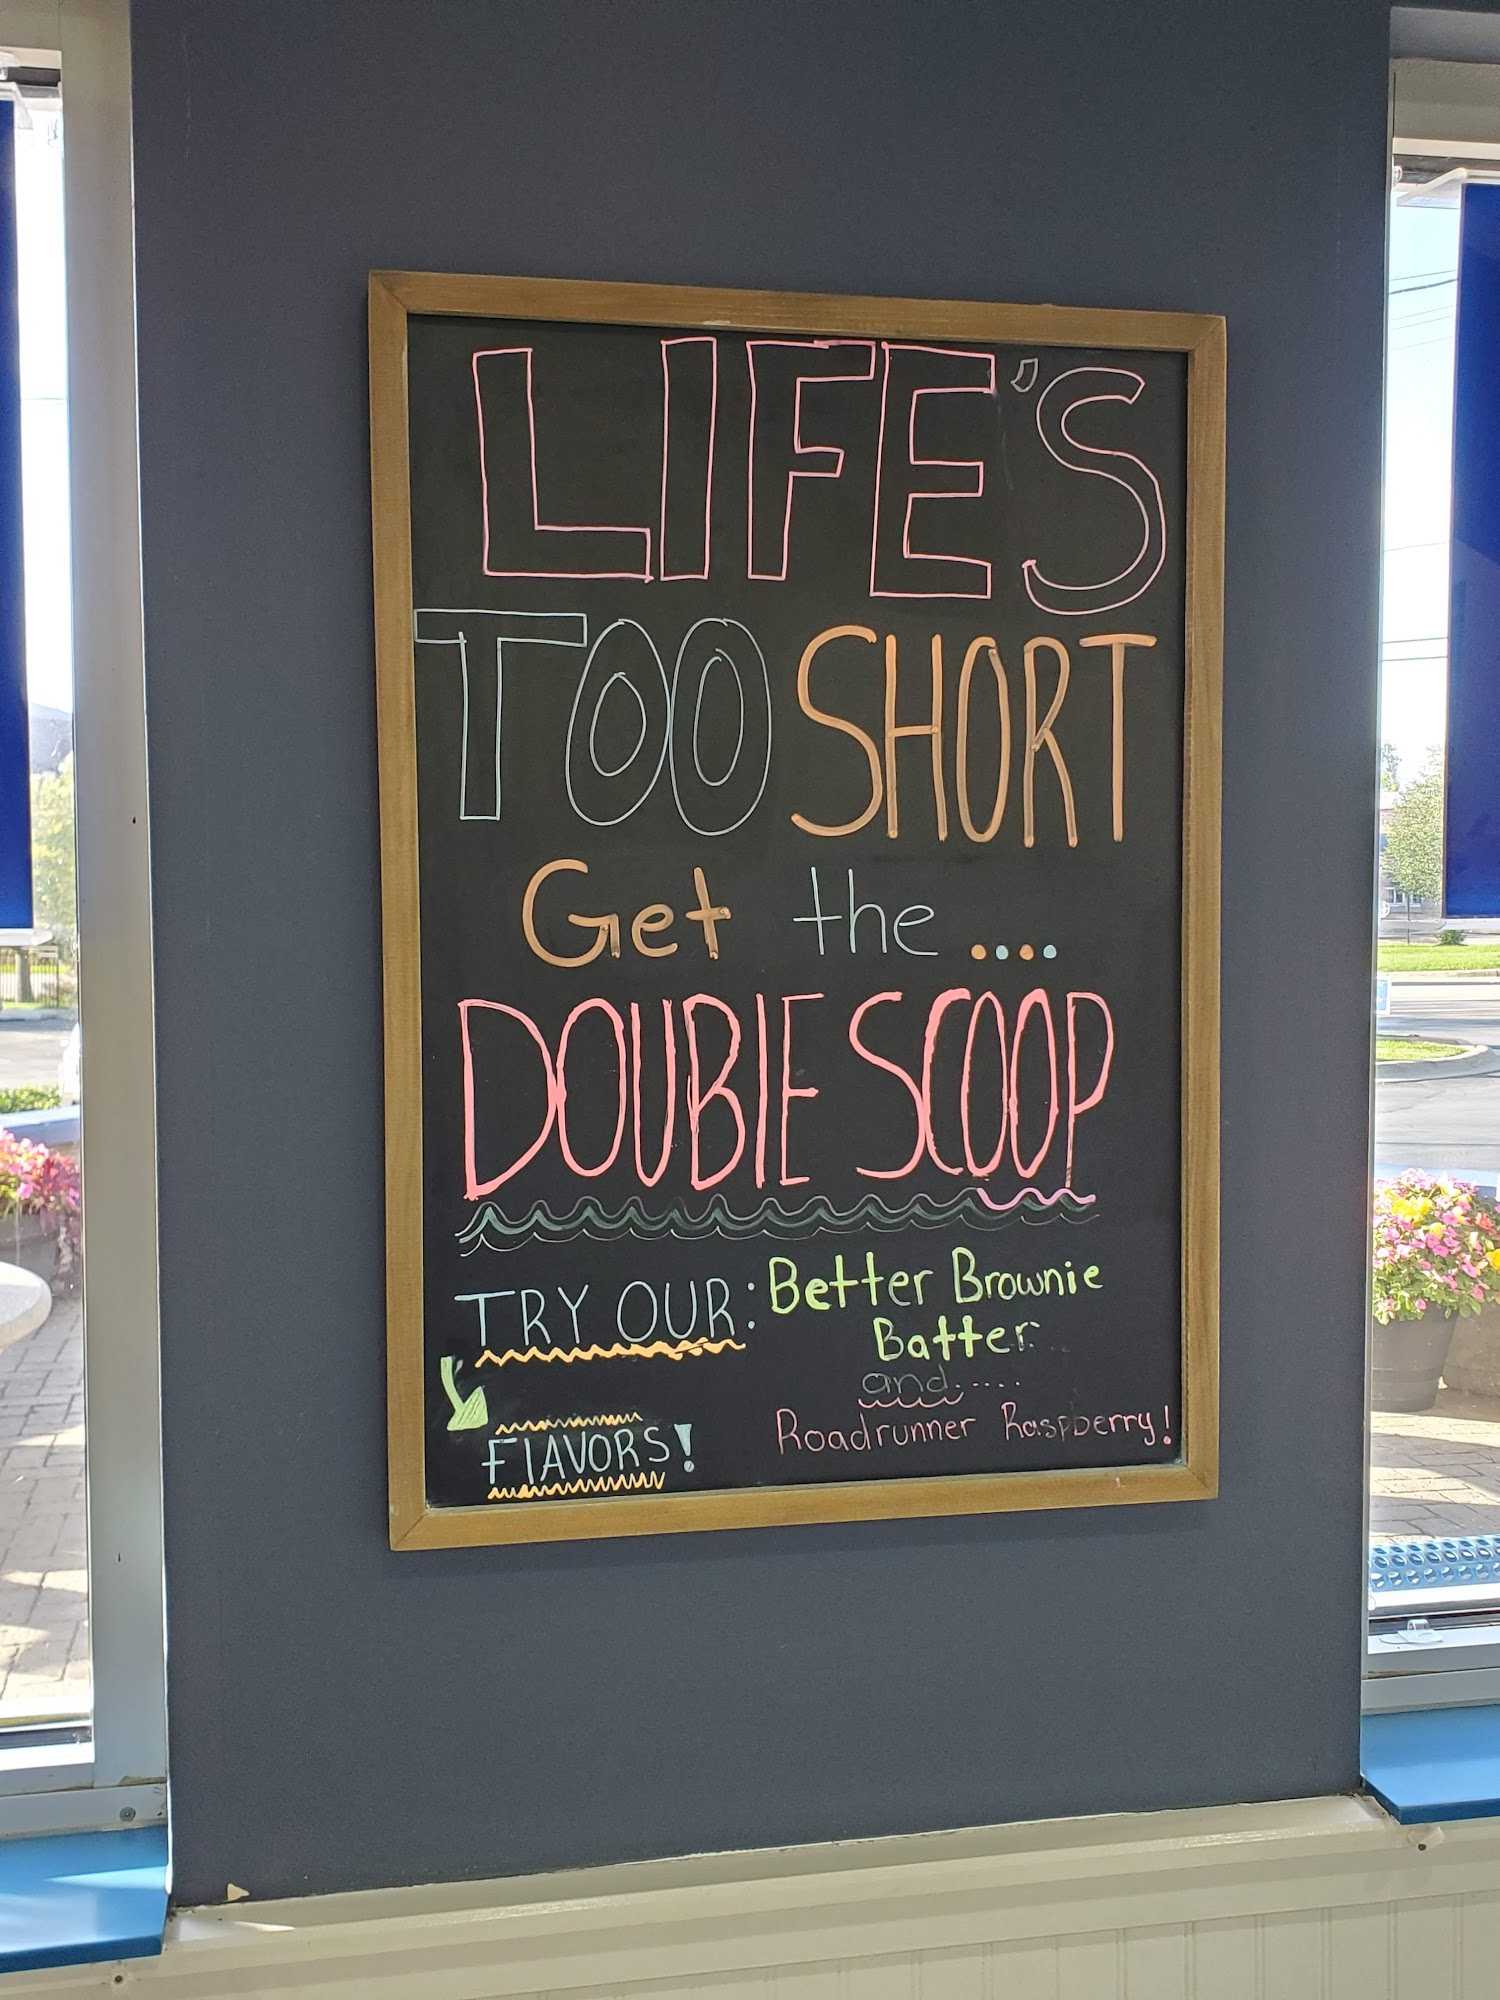 LIFE'S
TOO SHORT
Get the ....
DOUBlE SCOOP
TRY OUR:
FlAVORS!
Better Brownie
Batter
and.....
Roadrunner Raspberry!